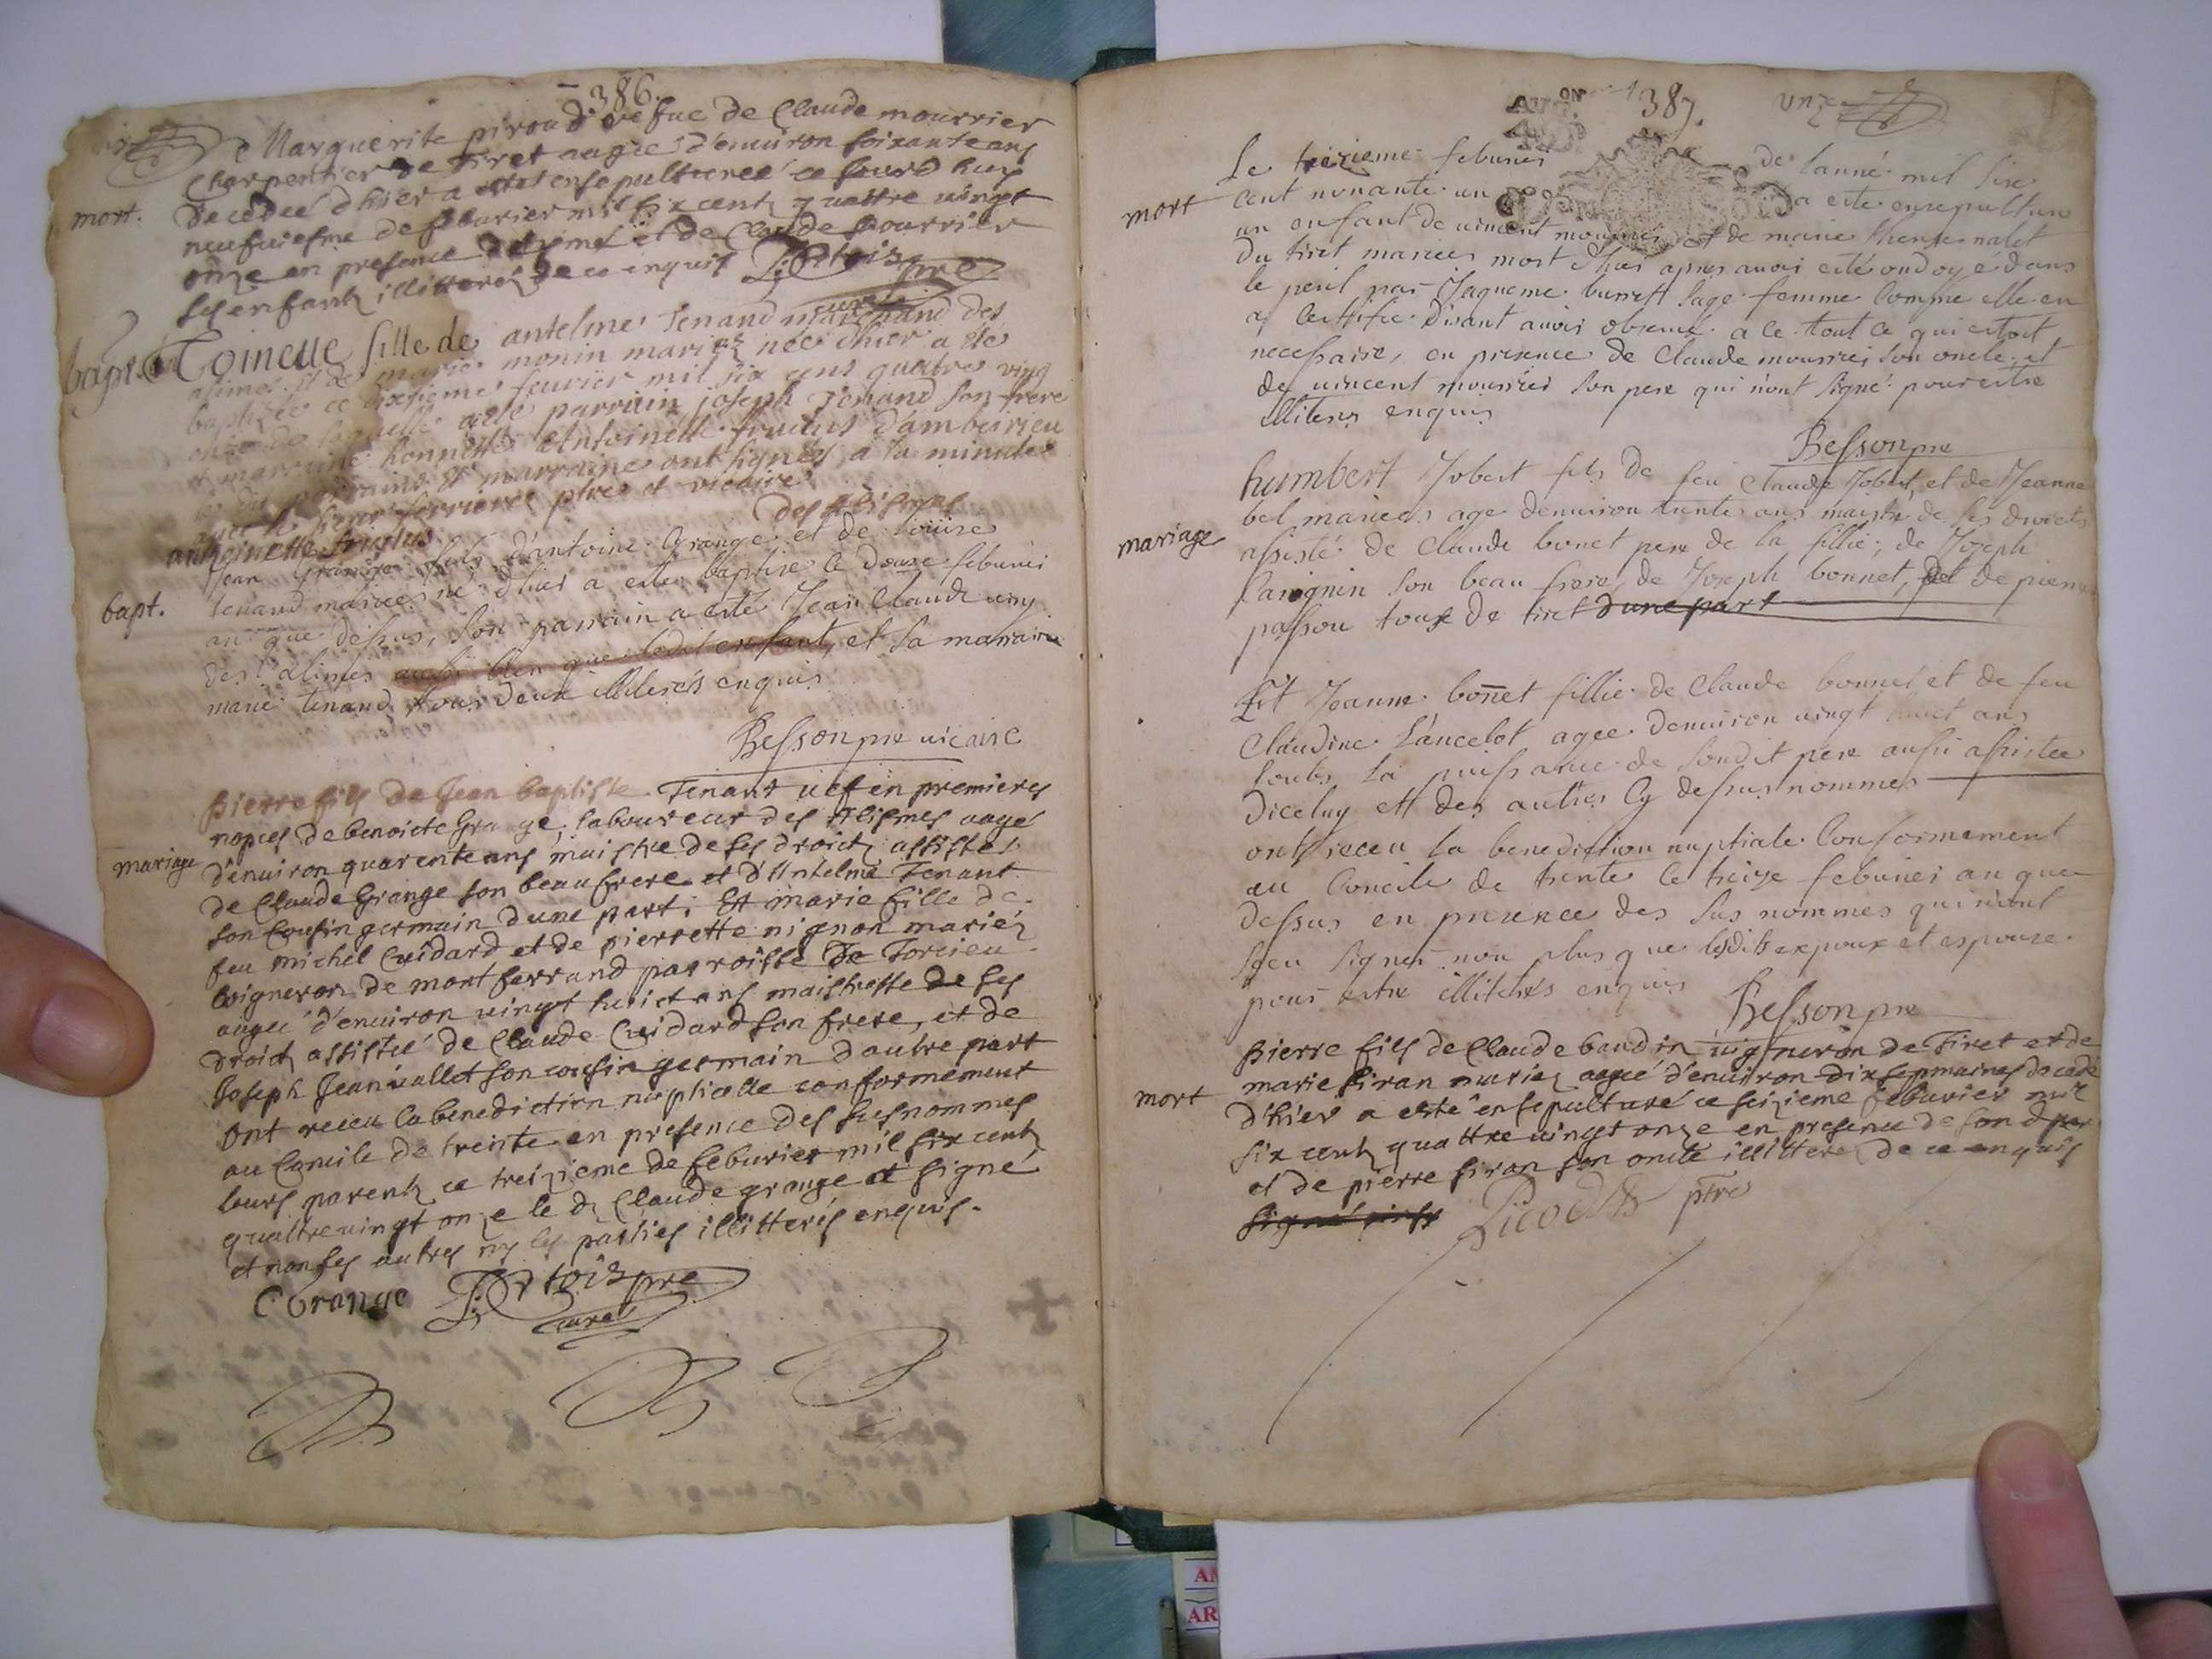 386.
Marguerite piroud vefue de Claude mourrier
Charpentier de Tiret aagée d'enuiron soixante ans
mort.
decedée d'hier a estét ensepulturée ce jourd huy
neufuiesme de feburier mil six centz quattre vingt
onze en presence d' et de Claude mourrier
ses enfantz illitterés de ce enquis pre
curé
bapt. Toinette fille de antelme Tenand marchand des
abimes et de marie monin mariez née d'hier a été
baptizée ce dixsieme feurier mil six cens quatre ving
onze de laquelle a été parrain joseph Tenand son frere
et marraine honneste Antoinette d'ambeirieu
parrain et marraine ont signés a la minute
auec le sieur ferriere ptre et vicaire
antoinette
Jean Grange fils d'antoine Grange et de louise
bapt.
tenand mariés né d'hier a esté baptise le douze feburier
an que dessus, son parrain a esté Jean Claude
des abimes aussi bien que ledit enfant, et sa marraine
marie tenand tous deux illiterés enquis
Besson pre uicaire
pierre fils de Jean baptiste Tenant uef en premieres
nopces de benoicte Grange, laboureur des Abismes aagé
mariage
d'enuiron quarente ans, maistre de ses droictz assisté
de Claude Grange son beaufrere et d'Antelme Tenant
son Cousin germain d'une part; Et marie fille de
feu michel Cuidard et de pierrette nignon mariéz
vigneron de montferrand parroisse De Torcieu
aagée d'enuiron vingt huict ans maistresse de ses
droictz assistée de Claude Cuidard son frere, et de
Joseph Jeanvallet son cousin germain d'autre part
ont receu la benediction nuptialle conformement
au Concile de trente en presence des susnommes
leurs parentz ce treizieme de feburier mil six centz
quattre vingt onze le dt Claude grange a signé
et non les autres ny les parties illitterés enquis.
C Grange pre
curé
387.
unze
Le treizieme feburier de lanné mil six
mort
cent nonante un a esté ensepulture
un enfant de uincent mourrier et de marie nalet
du tiret mariés mort d'hier apres auoir esté ondoyé dans
le peril par Jaqueme sage femme comme elle en
a certifié disant auoir obserué a ce tout ce qui estoit
necessaire, en presence de Claude mourrier son oncle et
de uincent mourrier son pere qui n'ont signé pour estre
illiterés enquis
Besson pre
humbert Jobert fils de feu Claude Jobert, et de Jeanne
bel mariés age denuiron trente ans maistre de ses droicts
mariage
assisté de Claude bonet pere de la fillie, de Joseph
son beau frere, de Joseph bonnet, et de pierre
passou tous de tiret d'une part
Et Jeanne bonnet fillie de Claude bonnet et de feu
Claudine Lancelot agee denuiron uingt huict ans
soubs la puissance de soudit pere aussi assistee
diceluy et des autres cy dessus nommes
ont receu la benediction nuptiale conformement
au Concile de trente le treize feburier an que
dessus en presence des sus nommes qui n'ont
sceu signer non plus que lesdits expoux et espouse
pour estre illiterés enquis
Besson pre
pierre fils de Claude baudin uigneron de Tiret et de
marie siran mariez aagé d'enuiron dix sepmaines decedé
mort
d'hier a esté ensepulturé ce seizieme feburier mil
six centz quattre vingt onze en presence de son d per
et de pierre siran son oncle illitterez de ce enquis
Picodth ptre